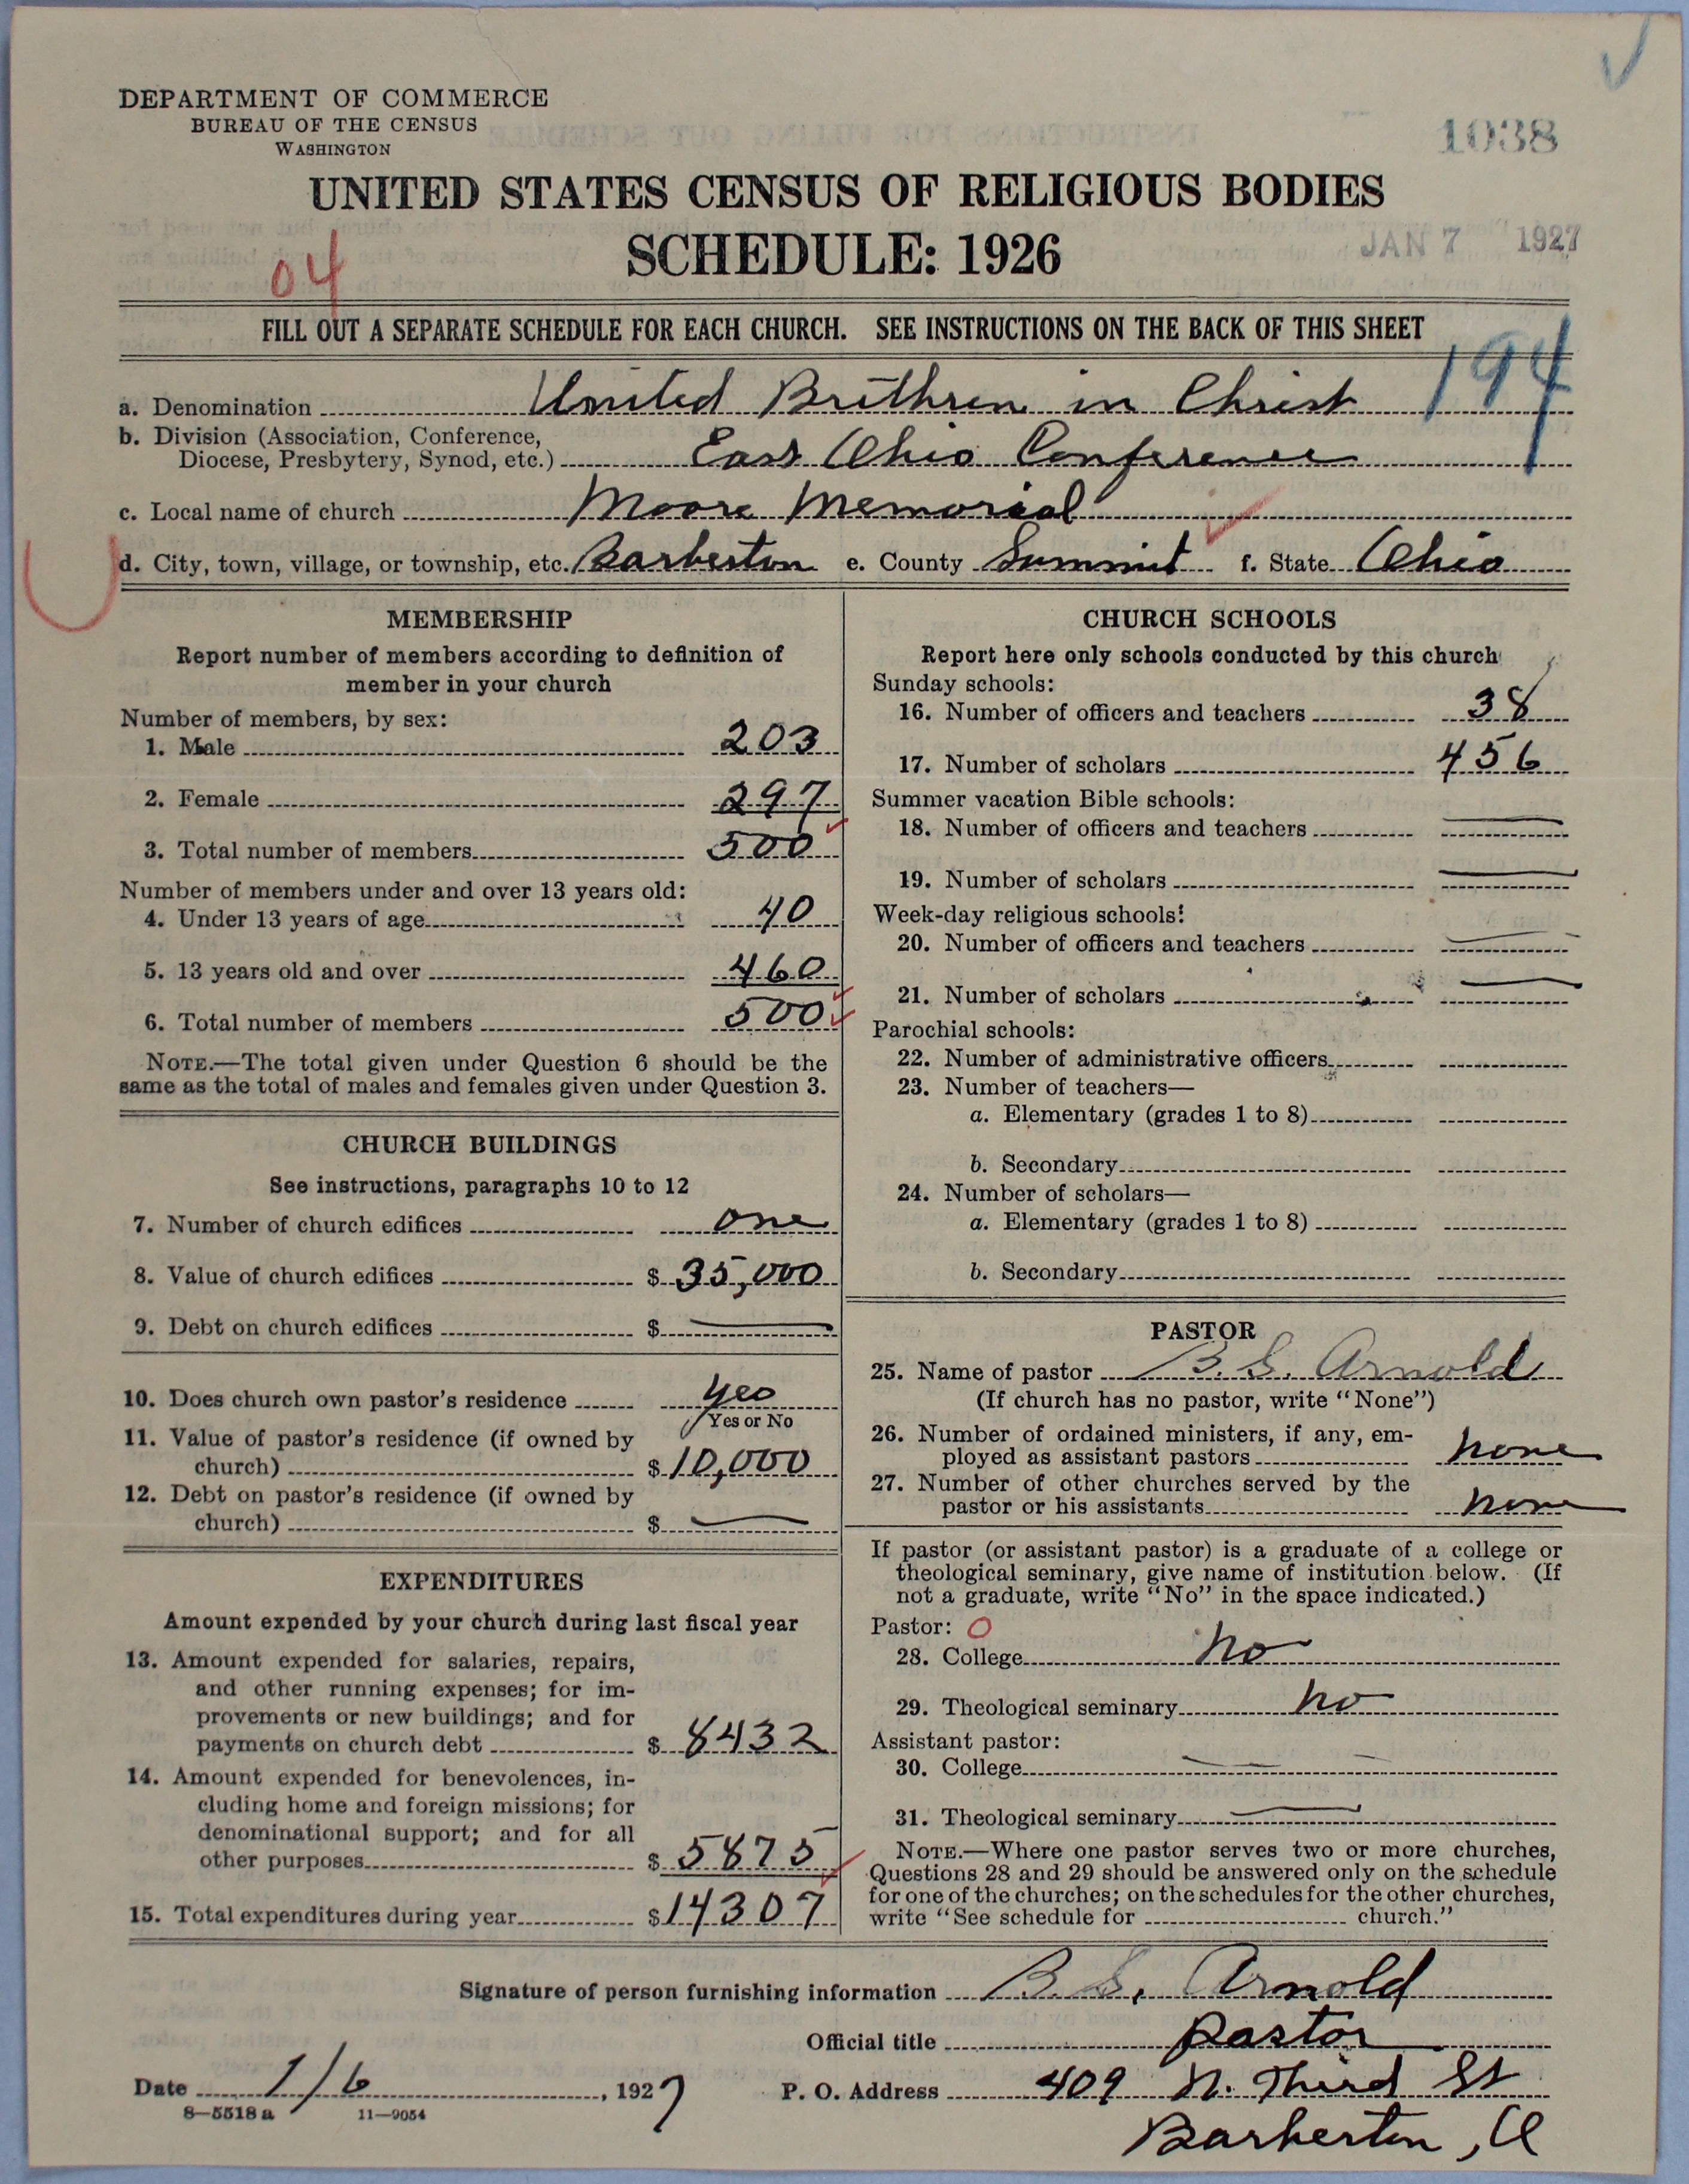 DEPARTMENT OF COMMERCE
BUREAU OF THE CENSUS
WASHINGTON
1038
UNITED STATES CENSUS OF RELIGIOUS BODIES
SCHEDULE: 1926
JAN 7 1927
04
FILL OUT A SEPARATE SCHEDULE FOR EACH CHURCH. SEE INSTRUCTIONS ON THE BACK OF THIS SHEET
194
a. Denomination United Brethren in Christ
b. Division (Association, Conference,
Diocese, Presbytery, Synod, etc.) East Ohio Conference
c. Local name of church Moore Memorial
d. City, town, village, or township, etc. Barberton e. County Summit f. State Ohio
MEMBERSHIP
Report number of members according to definition of
member in your church
Number of members, by sex:
1. Male 203
2. Female 297
3. Total number of members 500
Number of members under and over 13 years old:
4. Under 13 years of age 40
5. 13 years old and over 460
6. Total number of members 500
NOTE.—The total given under Question 6 should be the
same as the total of males and females given under Question 3.
CHURCH BUILDINGS
See instructions, paragraphs 10 to 12
7. Number of church edifices one
8. Value of church edifices $ 35,000
9. Debt on church edifices $ —
10. Does church own pastor's residence yes
Yes or No
11. Value of pastor's residence (if owned by
church) $ 10,000
12. Debt on pastor's residence (if owned by
church) $ —
EXPENDITURES
Amount expended by your church during last fiscal year
13. Amount expended for salaries, repairs,
and other running expenses; for im-
provements or new buildings; and for
payments on church debt $ 8432
14. Amount expended for benevolences, in-
cluding home and foreign missions; for
denominational support; and for all
other purposes $ 5875
15. Total expenditures during year $ 14307
CHURCH SCHOOLS
Report here only schools conducted by this church
Sunday schools:
16. Number of officers and teachers 38
17. Number of scholars 456
Summer vacation Bible schools:
18. Number of officers and teachers —
19. Number of scholars —
Week-day religious schools:
20. Number of officers and teachers —
21. Number of scholars —
Parochial schools:
22. Number of administrative officers
23. Number of teachers—
a. Elementary (grades 1 to 8)
b. Secondary
24. Number of scholars—
a. Elementary (grades 1 to 8)
b. Secondary
PASTOR
25. Name of pastor B. S. Arnold
(If church has no pastor, write "None")
26. Number of ordained ministers, if any, em-
ployed as assistant pastors none
27. Number of other churches served by the
pastor or his assistants none
If pastor (or assistant pastor) is a graduate of a college or
theological seminary, give name of institution below. (If
not a graduate, write "No" in the space indicated.)
Pastor: O
28. College no
29. Theological seminary no
Assistant pastor:
30. College —
31. Theological seminary —
NOTE.—Where one pastor serves two or more churches,
Questions 28 and 29 should be answered only on the schedule
for one of the churches; on the schedules for the other churches,
write "See schedule for church."
Signature of person furnishing information B. S. Arnold
Official title pastor
Date 1/6, 1927 P. O. Address 409 N. Third St
8—5518a 11—9054
Barberton, O